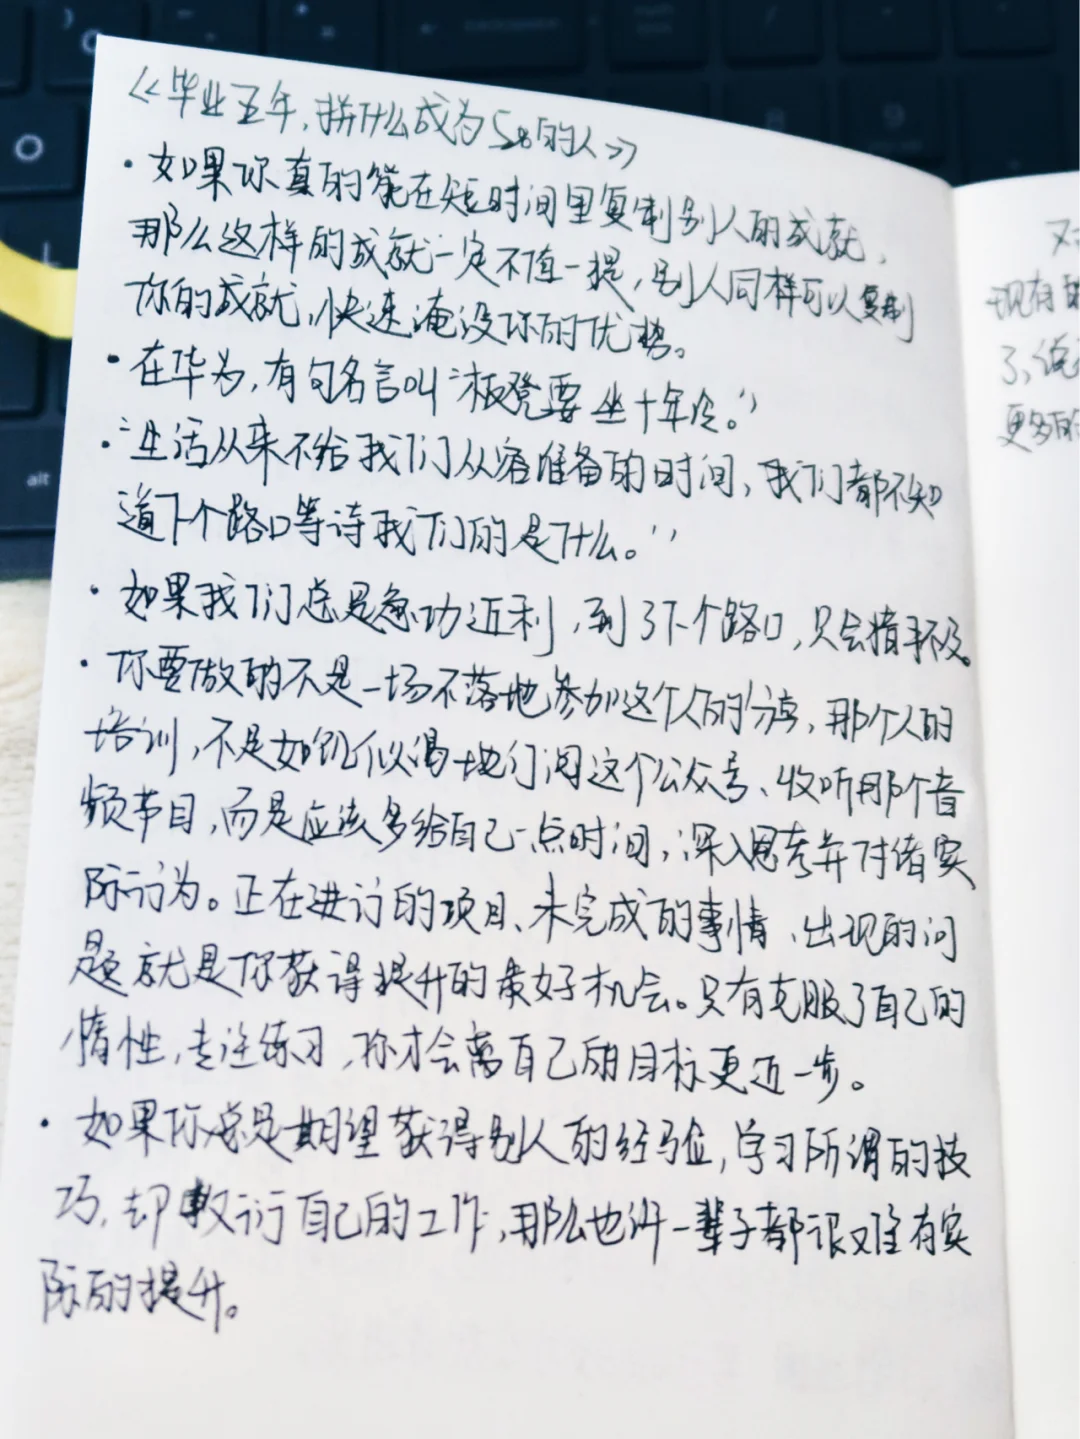 《毕业五年,拼什么成为5%的人》
·如果你真的能在短时间里复制别人的成就,
那么这样的成就一定不值一提,别人同样可以复制
你的成就,快速淹没你的优势。
·在华为,有句名言叫“板凳要坐十年冷。”
·“生活从来不给我们从容准备的时间,我们都不知
道下个路口等待我们的是什么。”
·如果我们总是急功近利,到了下个路口,只会措手不及。
·你要做的不是一场不落地参加这个人的分享,那个人的
培训,不是如饥似渴地订阅这个公众号、收听那个音
频节目,而是应该多给自己一点时间,深入思考并付诸实
际行为。正在进行的项目、未完成的事情、出现的问
题就是你获得提升的最好机会。只有克服了自己的
惰性,专注练习,你才会离自己的目标更近一步。
·如果你总是期望获得别人的经验,学习所谓的技
巧,却敷衍自己的工作,那么也许一辈子都很难有实
际的提升。
现有
了,
更多的
O
L
alt
8
9